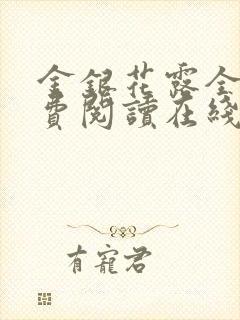 金銀花露全
費閱讀在綫
有寵君